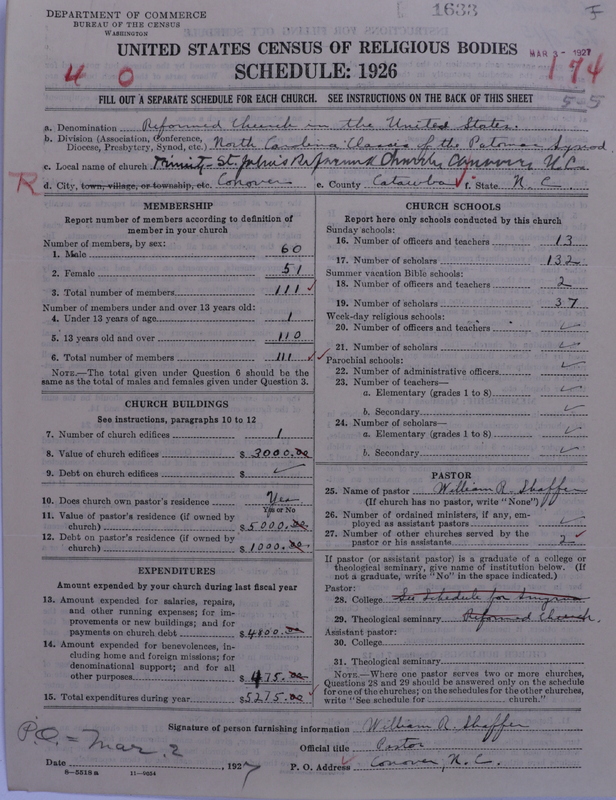 DEPARTMENT OF COMMERCE
BUREAU OF THE CENSUS
WASHINGTON
1633
UNITED STATES CENSUS OF RELIGIOUS BODIES
MAR 3- 1927
SCHEDULE: 1926
4 0
174
FILL OUT A SEPARATE SCHEDULE FOR EACH CHURCH. SEE INSTRUCTIONS ON THE BACK OF THIS SHEET
5-5
a. Denomination Reformed Church in the United States.
b. Division (Association, Conference, Diocese, Presbytery, Synod, etc.) North Carolina Classis of the Potomac Synod.
c. Local name of church Trinity St. John's Reformed Church, Conover, N.C.
R d. City, town, village, or township, etc. Conover e. County Catawba f. State N. C.
MEMBERSHIP
Report number of members according to definition of member in your church
Number of members, by sex:
1. Male 60
2. Female 51
3. Total number of members 111
Number of members under and over 13 years old:
4. Under 13 years of age 1
5. 13 years old and over 110
6. Total number of members 111
NOTE.—The total given under Question 6 should be the same as the total of males and females given under Question 3.
CHURCH BUILDINGS
See instructions, paragraphs 10 to 12
7. Number of church edifices 1
8. Value of church edifices $ 3000.00
9. Debt on church edifices $
10. Does church own pastor's residence Yes
Yes or No
11. Value of pastor's residence (if owned by church) $5000.00
12. Debt on pastor's residence (if owned by church) $1000.00
EXPENDITURES
Amount expended by your church during last fiscal year
13. Amount expended for salaries, repairs, and other running expenses; for improvements or new buildings; and for payments on church debt $4800.00
14. Amount expended for benevolences, including home and foreign missions; for denominational support; and for all other purposes $475.00
15. Total expenditures during year $5275.00
CHURCH SCHOOLS
Report here only schools conducted by this church
Sunday schools:
16. Number of officers and teachers 13
17. Number of scholars 132
Summer vacation Bible schools:
18. Number of officers and teachers 2
19. Number of scholars 37
Week-day religious schools:
20. Number of officers and teachers
21. Number of scholars
Parochial schools:
22. Number of administrative officers
23. Number of teachers—
a. Elementary (grades 1 to 8)
b. Secondary
24. Number of scholars—
a. Elementary (grades 1 to 8)
b. Secondary
PASTOR
25. Name of pastor William R. Shaffer
(If church has no pastor, write "None")
26. Number of ordained ministers, if any, employed as assistant pastors
27. Number of other churches served by the pastor or his assistants 2
If pastor (or assistant pastor) is a graduate of a college or theological seminary, give name of institution below. (If not a graduate, write "No" in the space indicated.)
Pastor:
28. College See Schedule for Smyrna
29. Theological seminary Reformed Church.
Assistant pastor:
30. College
31. Theological seminary
NOTE.—Where one pastor serves two or more churches, Questions 28 and 29 should be answered only on the schedule for one of the churches; on the schedules for the other churches, write "See schedule for church."
Signature of person furnishing information William R. Shaffer
Official title Pastor
P.O. = Mar. 2
Date , 1927 P. O. Address Conover, N. C.
8—5518a 11—9654